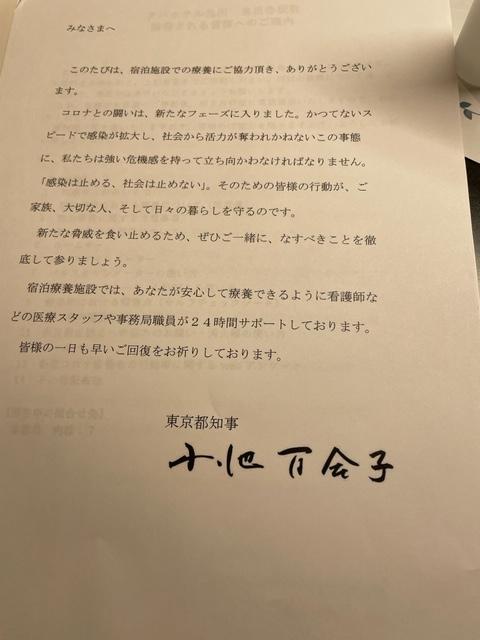 みなさまへ
このたびは、宿泊施設での療養にご協力頂き、ありがとうござい
ます。
コロナとの闘いは、新たなフェーズに入りました。かつてないス
ピードで感染が拡大し、社会から活力が奪われかねないこの事態
に、私たちは強い危機感を持って立ち向かわなければなりません。
「感染は止める、社会は止めない」。そのための皆様の行動が、ご
家族、大切な人、そして日々の暮らしを守るのです。
新たな脅威を食い止めるため、ぜひご一緒に、なすべきことを徹
底して参りましょう。
宿泊療養施設では、あなたが安心して療養できるように看護師な
どの医療スタッフや事務局職員が２４時間サポートしております。
皆様の一日も早いご回復をお祈りしております。
東京都知事
小池百合子